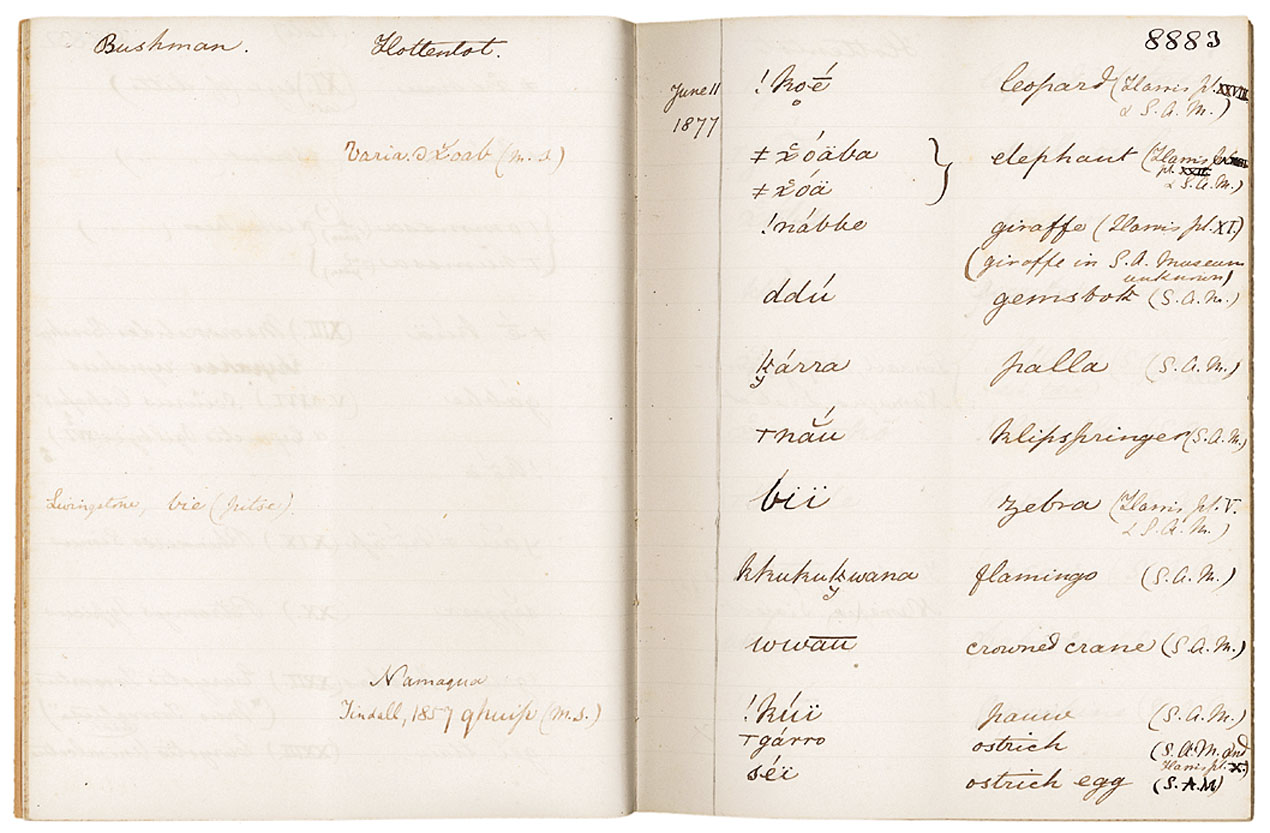 Bushman. Hottentot.
Varia. ∂ Xoab (m. s)
Livingstone, bie (pitse).
Namaqua
Tindall, 1857 qhuip (m. s.)
8883
June 11
1877
!ko̱-é leopard (Harris pl. XXVIII
& S. A. M.)
≠ x̌óäba } elephant (Harris
pl. XXII
≠ x̌óä & S. A. M.)
!nábbe giraffe (Harris pl. XI.)
(giraffe in S. A. Museum
unknown)
ddú gemsbok (S. A. M.)
kárra palla (S. A. M.)
ϯnắu klipspringer (S. A. M.)
bïï zebra (Harris pl. V.
& S. A. M.)
kkukukwana flamingo (S. A. M.)
wwāū crowned crane (S. A. M.)
!kúï paauw (S. A. M.)
ϯgárro ostrich (S. A. M. and
Harris pl. X.)
séï ostrich egg (S. A. M)